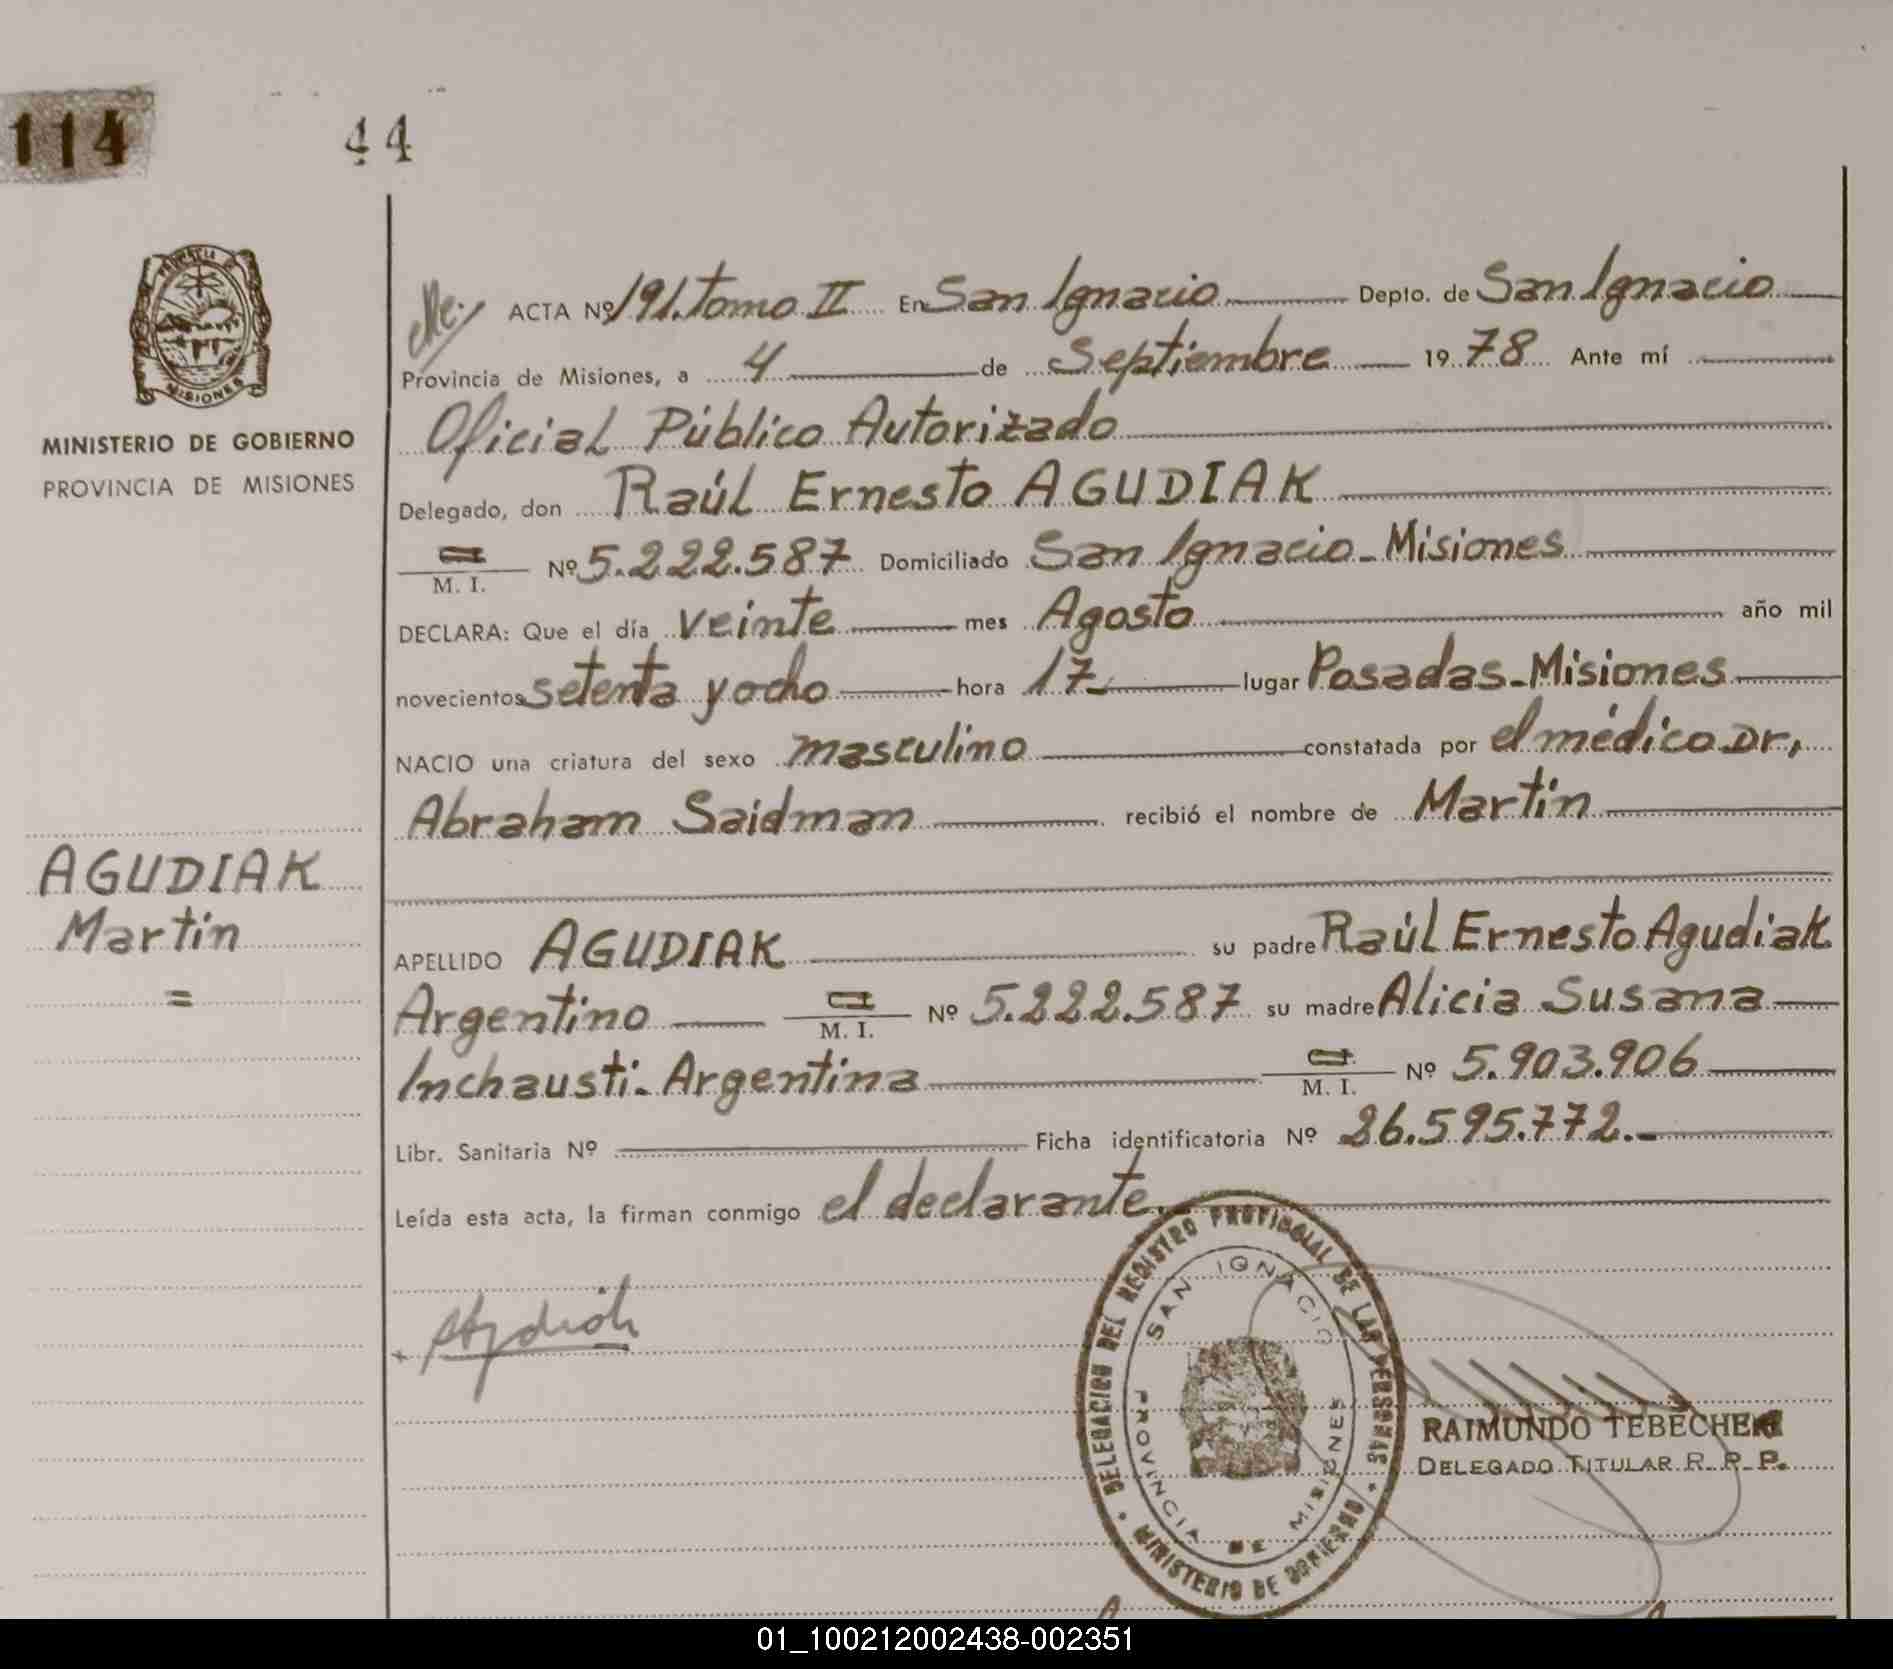 114
44
MINISTERIO DE GOBIERNO
PROVINCIA DE MISIONES
ACTA Nº 191. Tomo II En San Ignacio Depto. de San Ignacio
Provincia de Misiones, a 4 de Septiembre 1978 Ante mí
Oficial Público Autorizado
Delegado, don Raúl Ernesto AGUDIAK
M. I. Nº 5.222.587 Domiciliado San Ignacio - Misiones
DECLARA: Que el día veinte mes Agosto año mil
novecientos setenta y ocho hora 17 lugar Posadas - Misiones
NACIO una criatura del sexo masculino constatada por el médico Dr,
Abraham Saidman recibió el nombre de Martin
AGUDIAK
Martin
=
APELLIDO AGUDIAK su padre Raúl Ernesto Agudiak
Argentino M. I. Nº 5.222.587 su madre Alicia Susana
Inchausti - Argentina M. I. Nº 5.903.906
Libr. Sanitaria Nº Ficha identificatoria Nº 26.595.772.-
Leída esta acta, la firman conmigo el declarante.-
DELEGACION DEL REGISTRO PROVINCIAL DE LAS PERSONAS
MINISTERIO DE GOBIERNO
SAN IGNACIO
PROVINCIA DE MISIONES
RAIMUNDO TEBECHERI
DELEGADO TITULAR R. P. P.
01_100212002438-002351